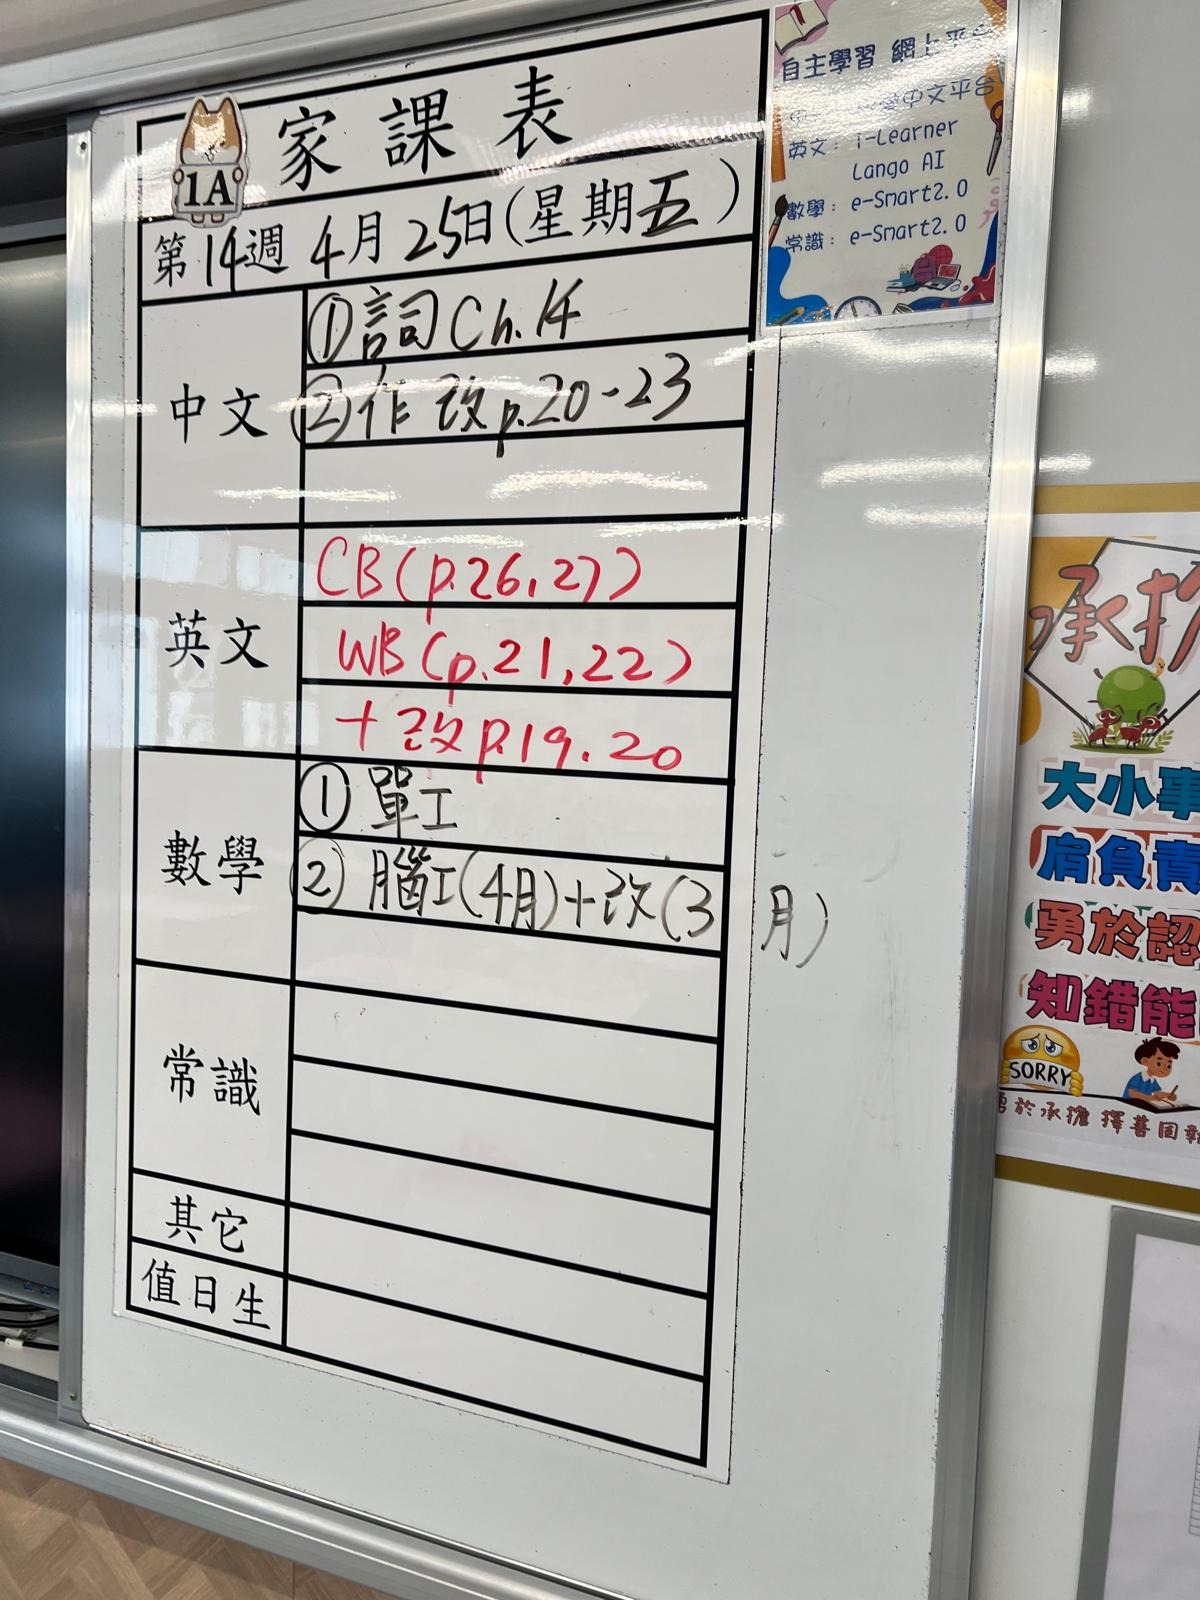 家課表
1A
第14週 4月25日(星期五)
中文
①詞 Ch.14
②作 改p.20-23
英文
CB(p.26,27)
WB(p.21,22)
+改p.19.20
數學
① 單工
② 腦工(4月)+改(3月)
常識
其它
值日生
自主學習 網上平台
中文平台
英文: i-Learner
Lango AI
數學: e-Smart2.0
常識: e-Smart2.0
承擔
大小事
肩負責
勇於認
知錯能
SORRY
勇於承擔 擇善固執